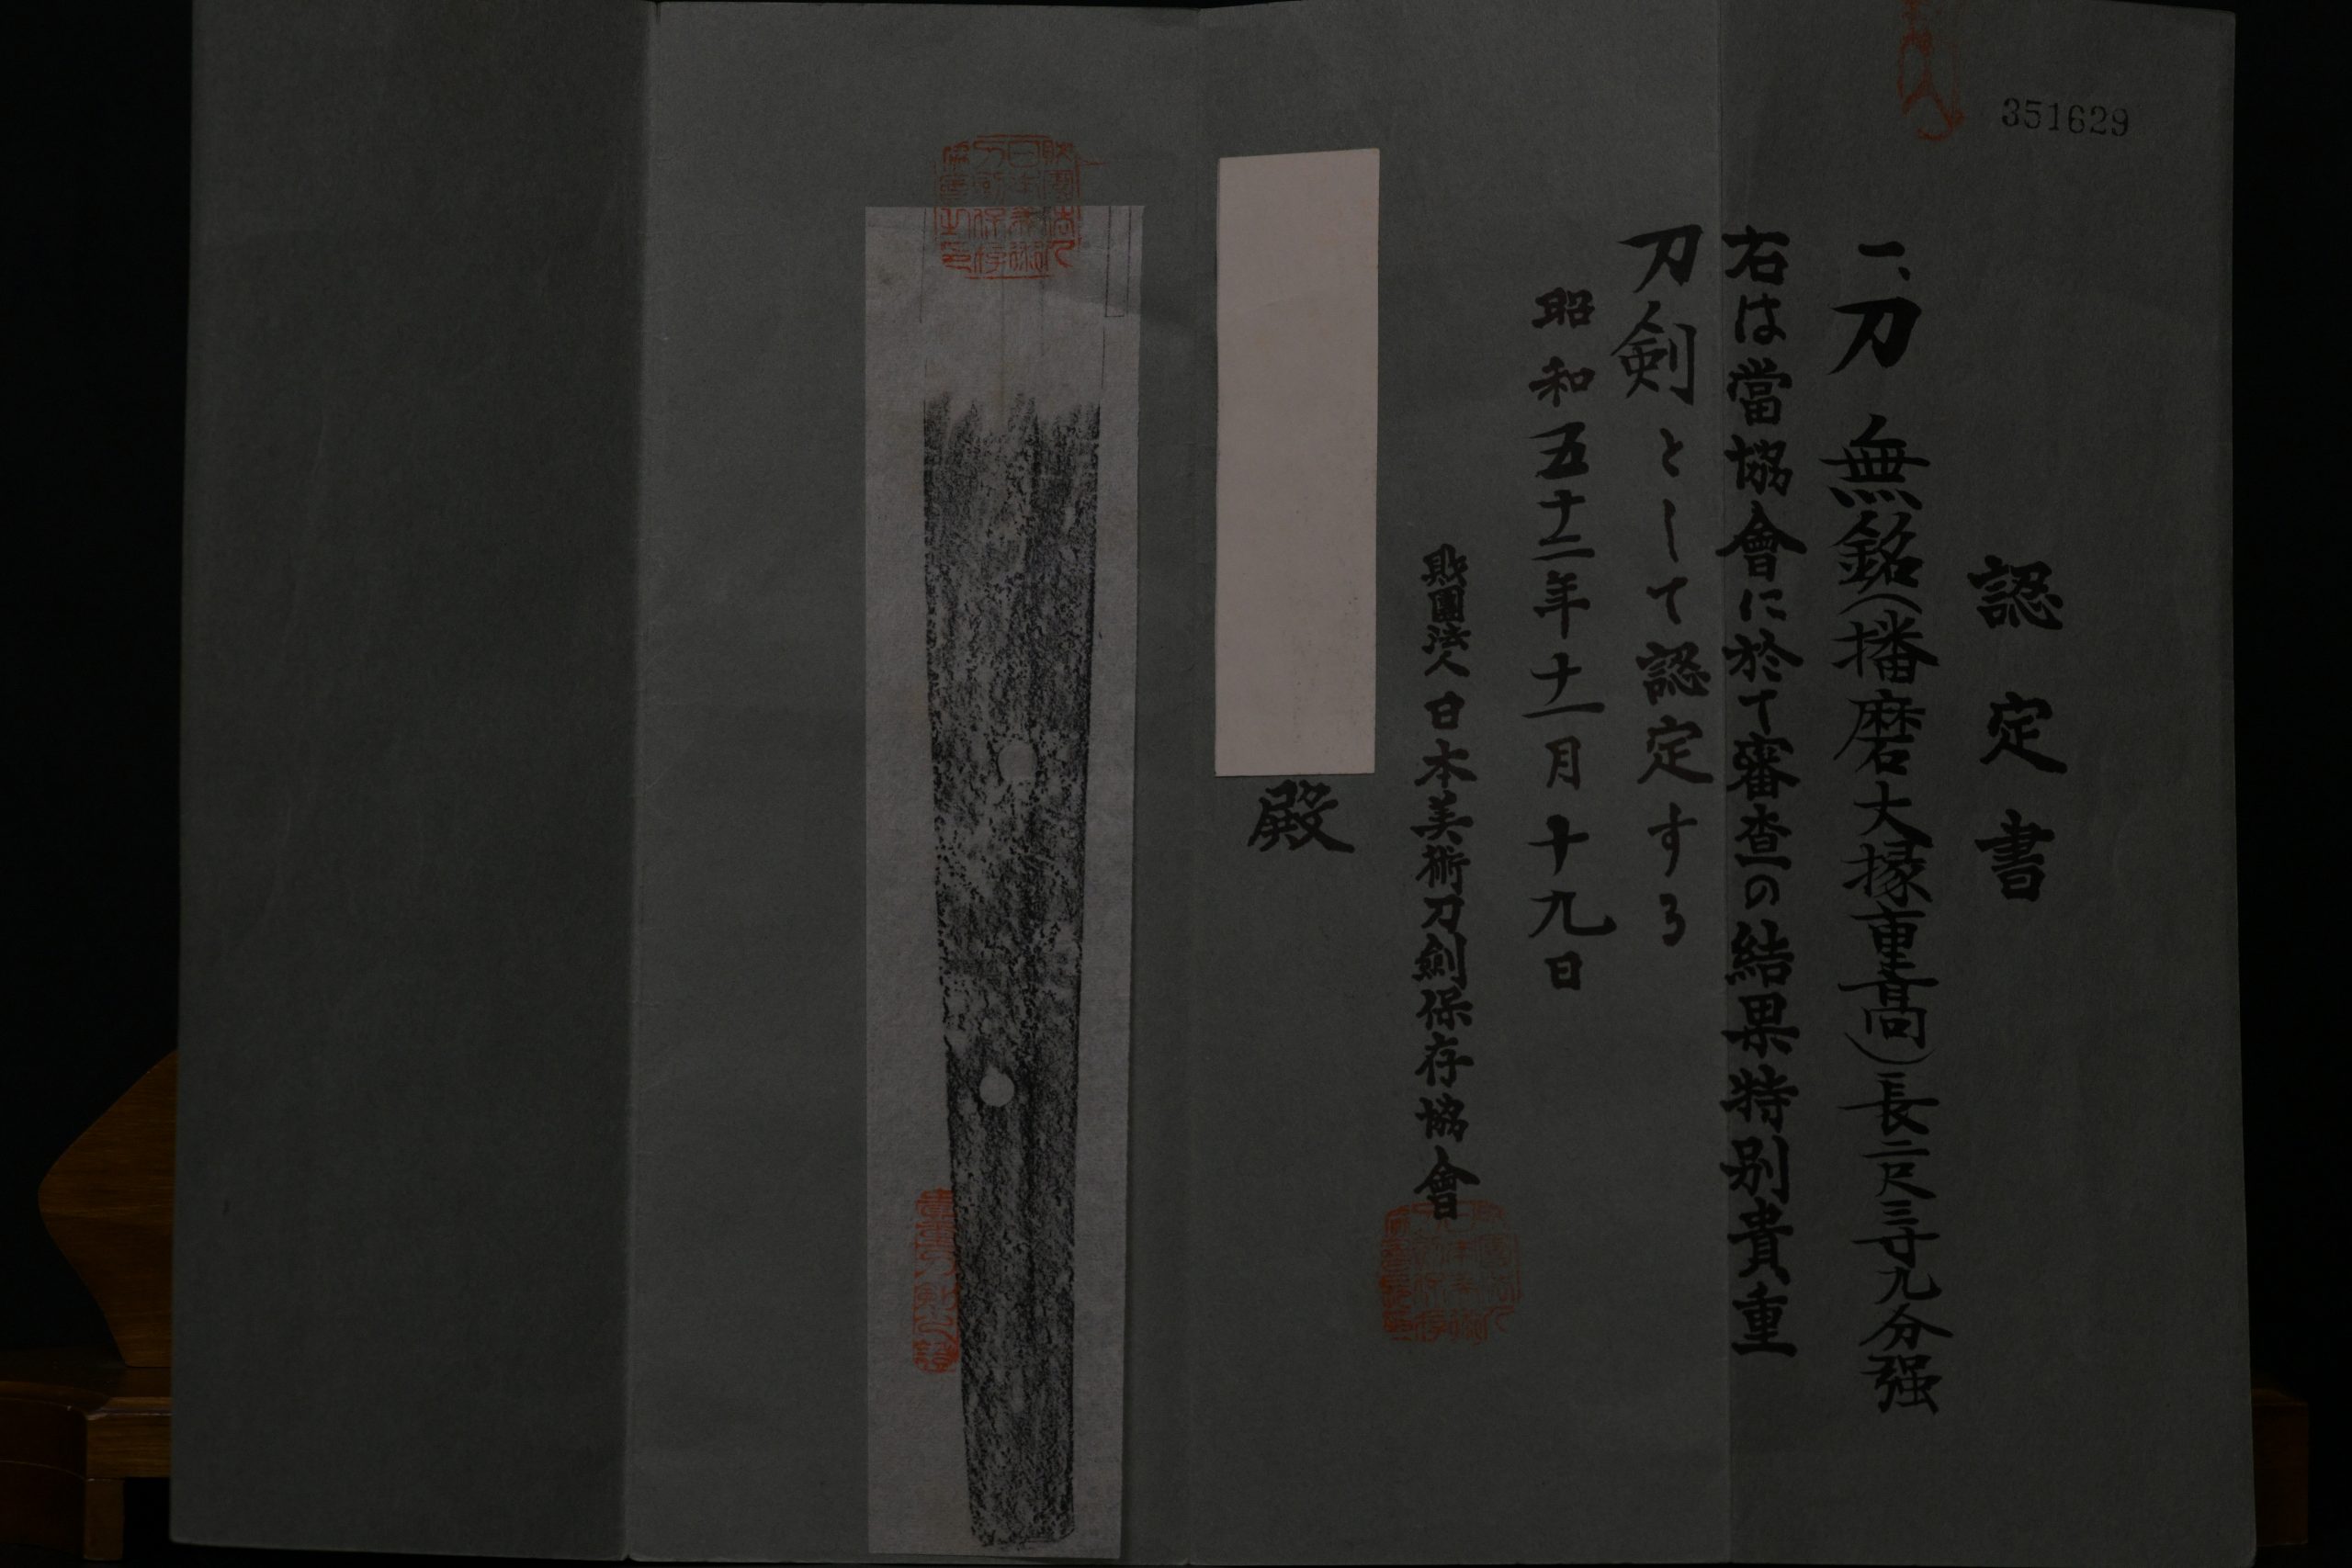 351629
認定書
一、刀 無銘(播磨大掾重高)長二尺三寸九分强
右は當協會に於て審査の結果特別貴重
刀剣として認定する
昭和五十二年十一月十九日
財團法人日本美術刀劍保存協會
殿